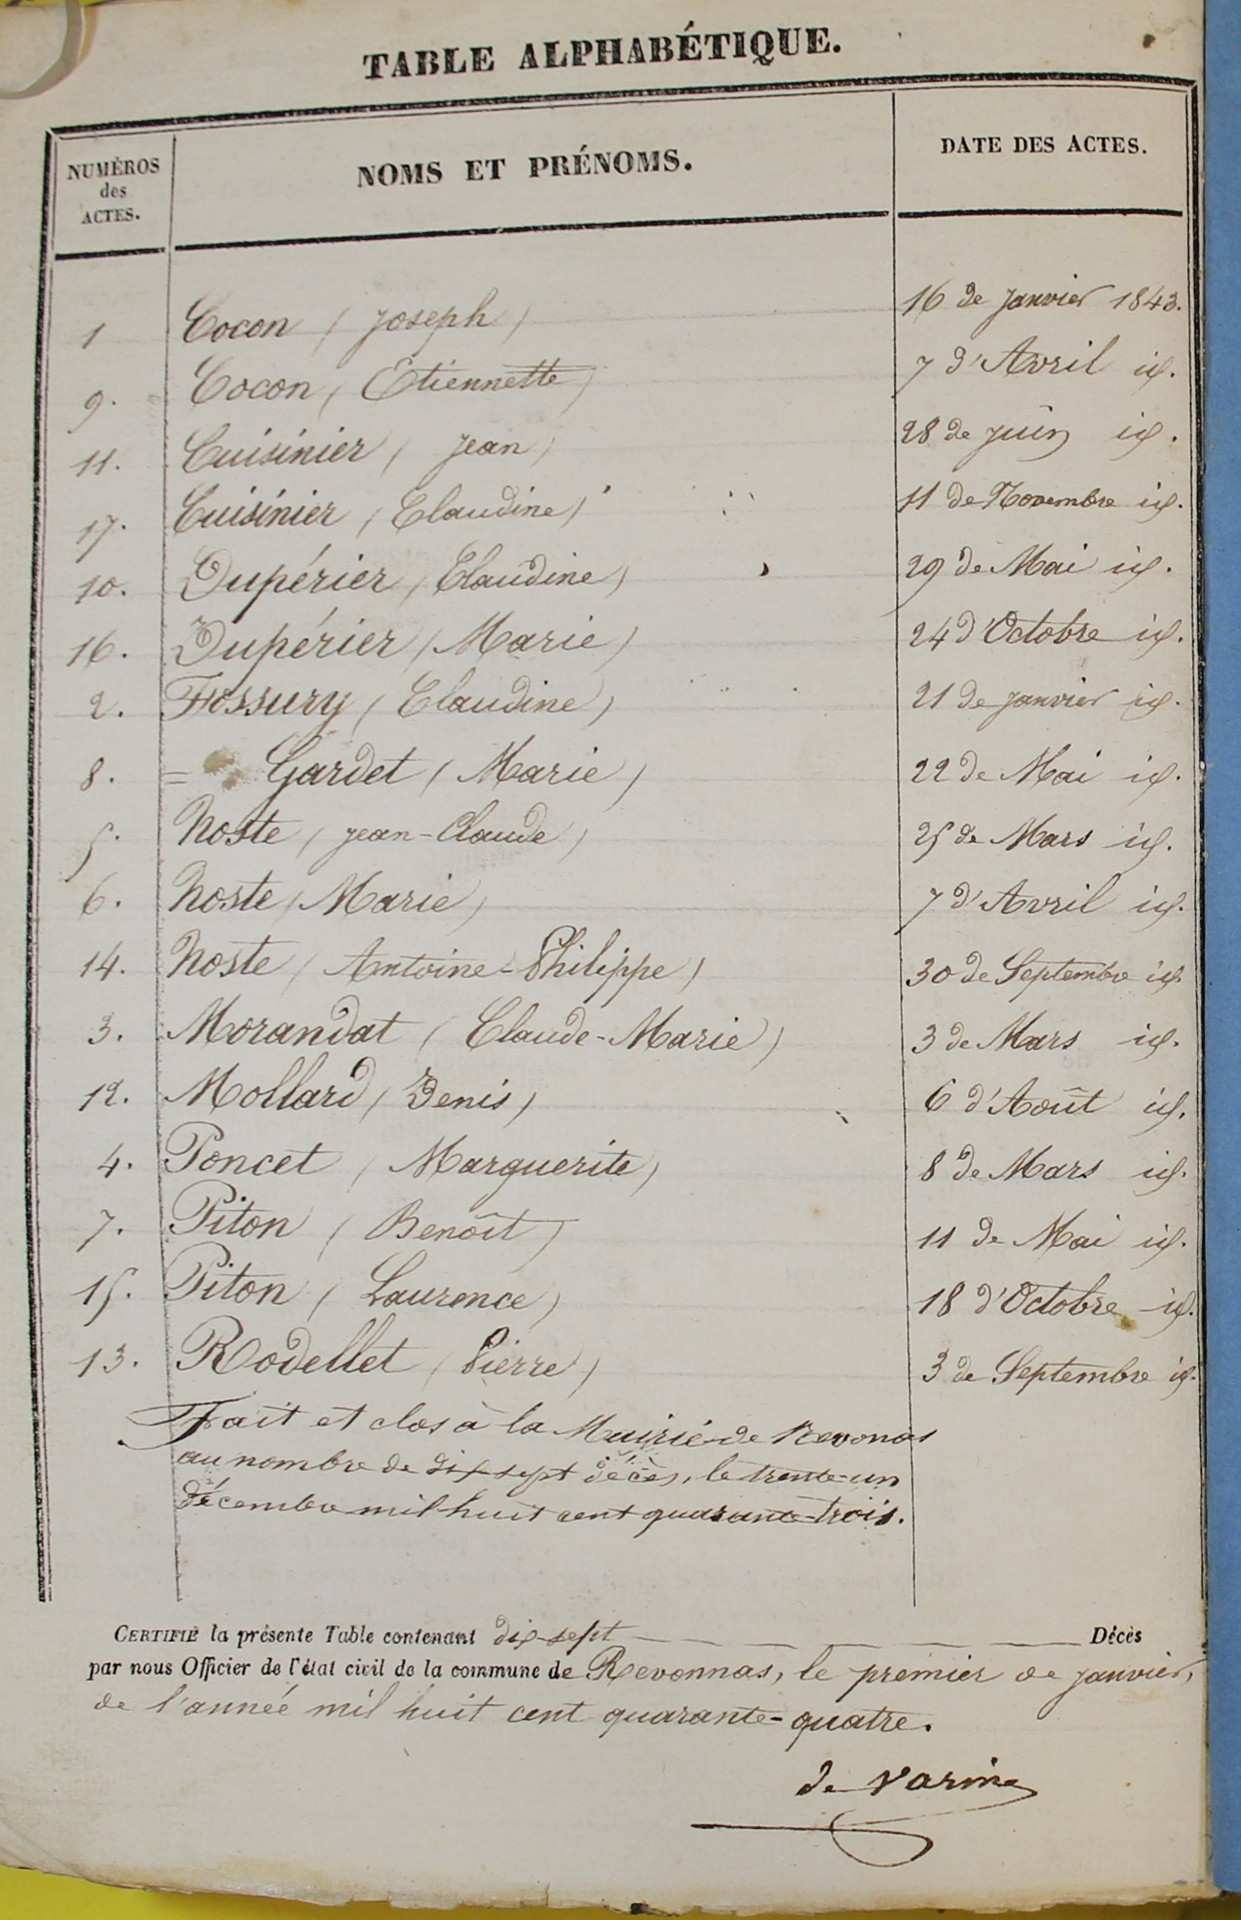 TABLE ALPHABÉTIQUE.
NUMÉROS des ACTES. NOMS ET PRÉNOMS. DATE DES ACTES.
1 Cocon (Joseph) 16 de janvier 1843.
9. Cocon (Etiennette) 7 d'Avril id.
11. Cuisinier (Jean) 28 de juin id.
17. Cuisinier (Claudine) 11 de Novembre id.
10. Dupérier (Claudine) 29 de Mai id.
16. Dupérier (Marie) 24 d'Octobre id.
2. Fossury (Claudine) 21 de janvier id.
8. = Gardet (Marie) 22 de Mai id.
5. Noste (jean-Claude) 25 de Mars id.
6. Noste (Marie) 7 d'Avril id.
14. Noste (Antoine-Philippe) 30 de Septembre id.
3. Morandat (Claude-Marie) 3 de Mars id.
12. Mollard (Denis) 6 d'Août id.
4. Poncet (Marguerite) 8 de Mars id.
7. Piton (Benoît) 11 de Mai id.
15. Piton (Laurence) 18 d'Octobre id.
13. Rodellet (Pierre) 3 de Septembre id.
Fait et clos à la Mairie de Revonas
au nombre de dix-sept décès, le trente-un
décembre mil huit cent quarante-trois.
CERTIFIÉ la présente Table contenant dix-sept Décès
par nous Officier de l'état civil de la commune de Revonnas, le premier de janvier,
de l'année mil huit cent quarante-quatre.
de Varine